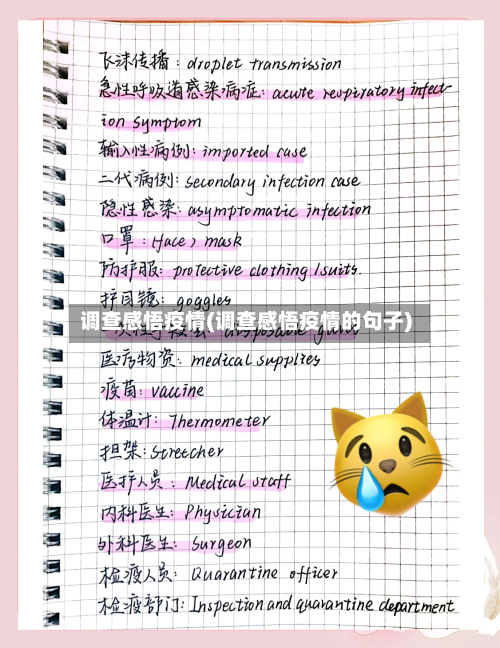 飞沫传播：droplet transmission
急性呼吸道感染病症：acute respiratory infect
ion symptom
输入性病例：imported case
二代病例：secondary infection case
隐性感染：asymptomatic infection
口罩：(face) mask
防护服：protective clothing / suits.
护目镜：goggles
调查感悟疫情(调查感悟疫情的句子)
医疗物资：medical supplies
疫苗：vaccine
体温计：Thermometer
担架：Stretcher
医护人员：Medical staff
内科医生：Physician
外科医生：Surgeon
检疫人员：Quarantine officer
检疫部门：Inspection and quarantine department